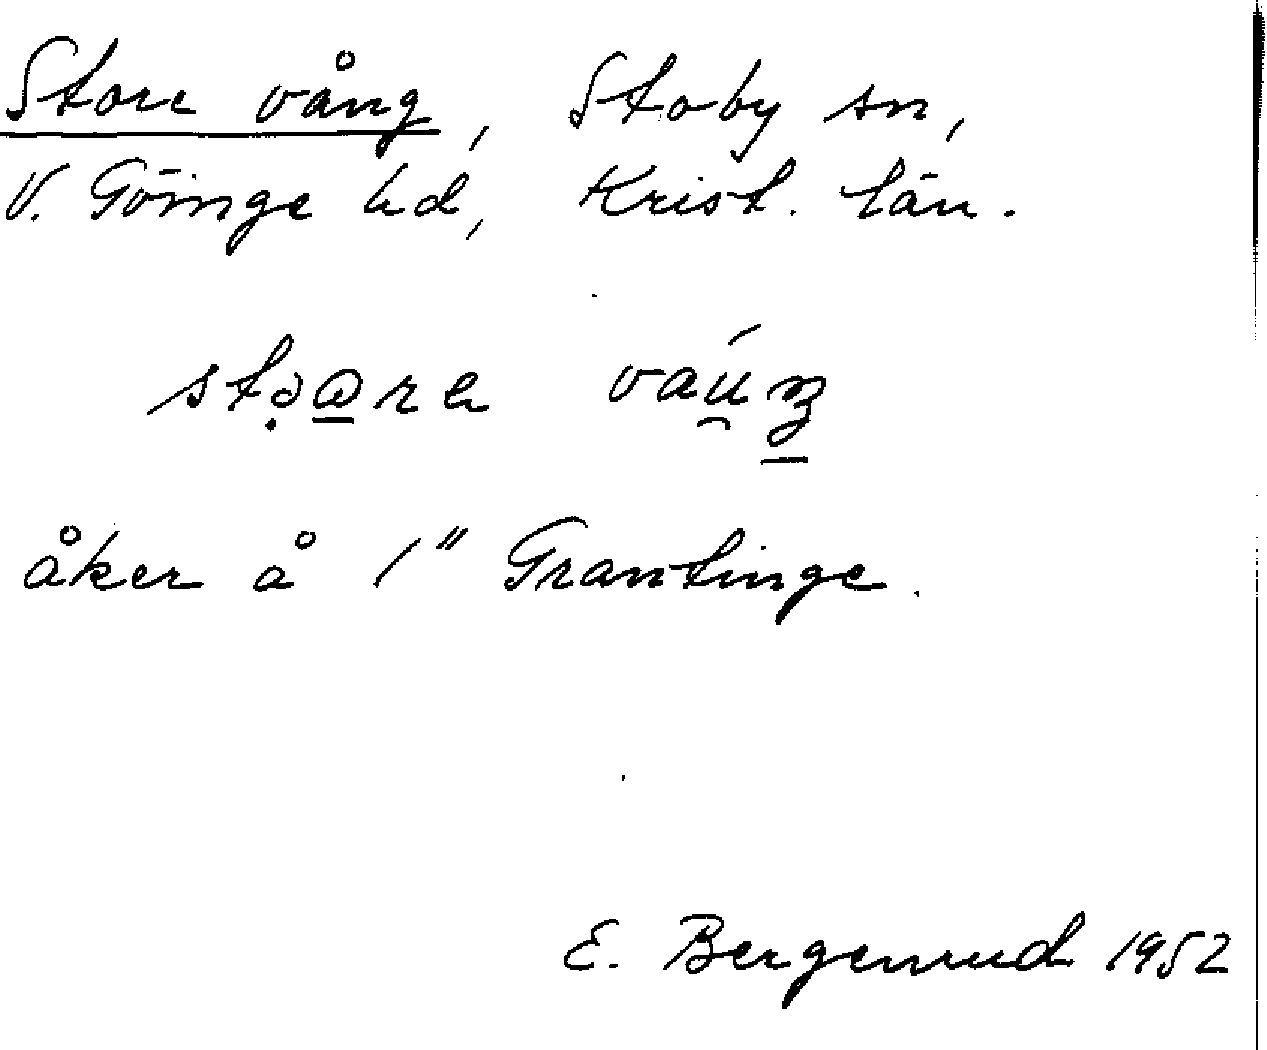 Store vång, Stoby sn,
V. Göinge hd, Krist. län.
åker å 1" Grantinge.
E. Bergenrud 1952